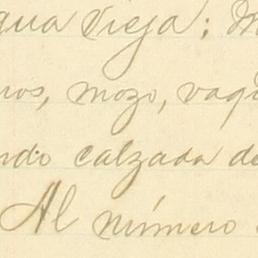 gua Vieja; M
nos, mozo, vaqu
ndo calzada de
Al número